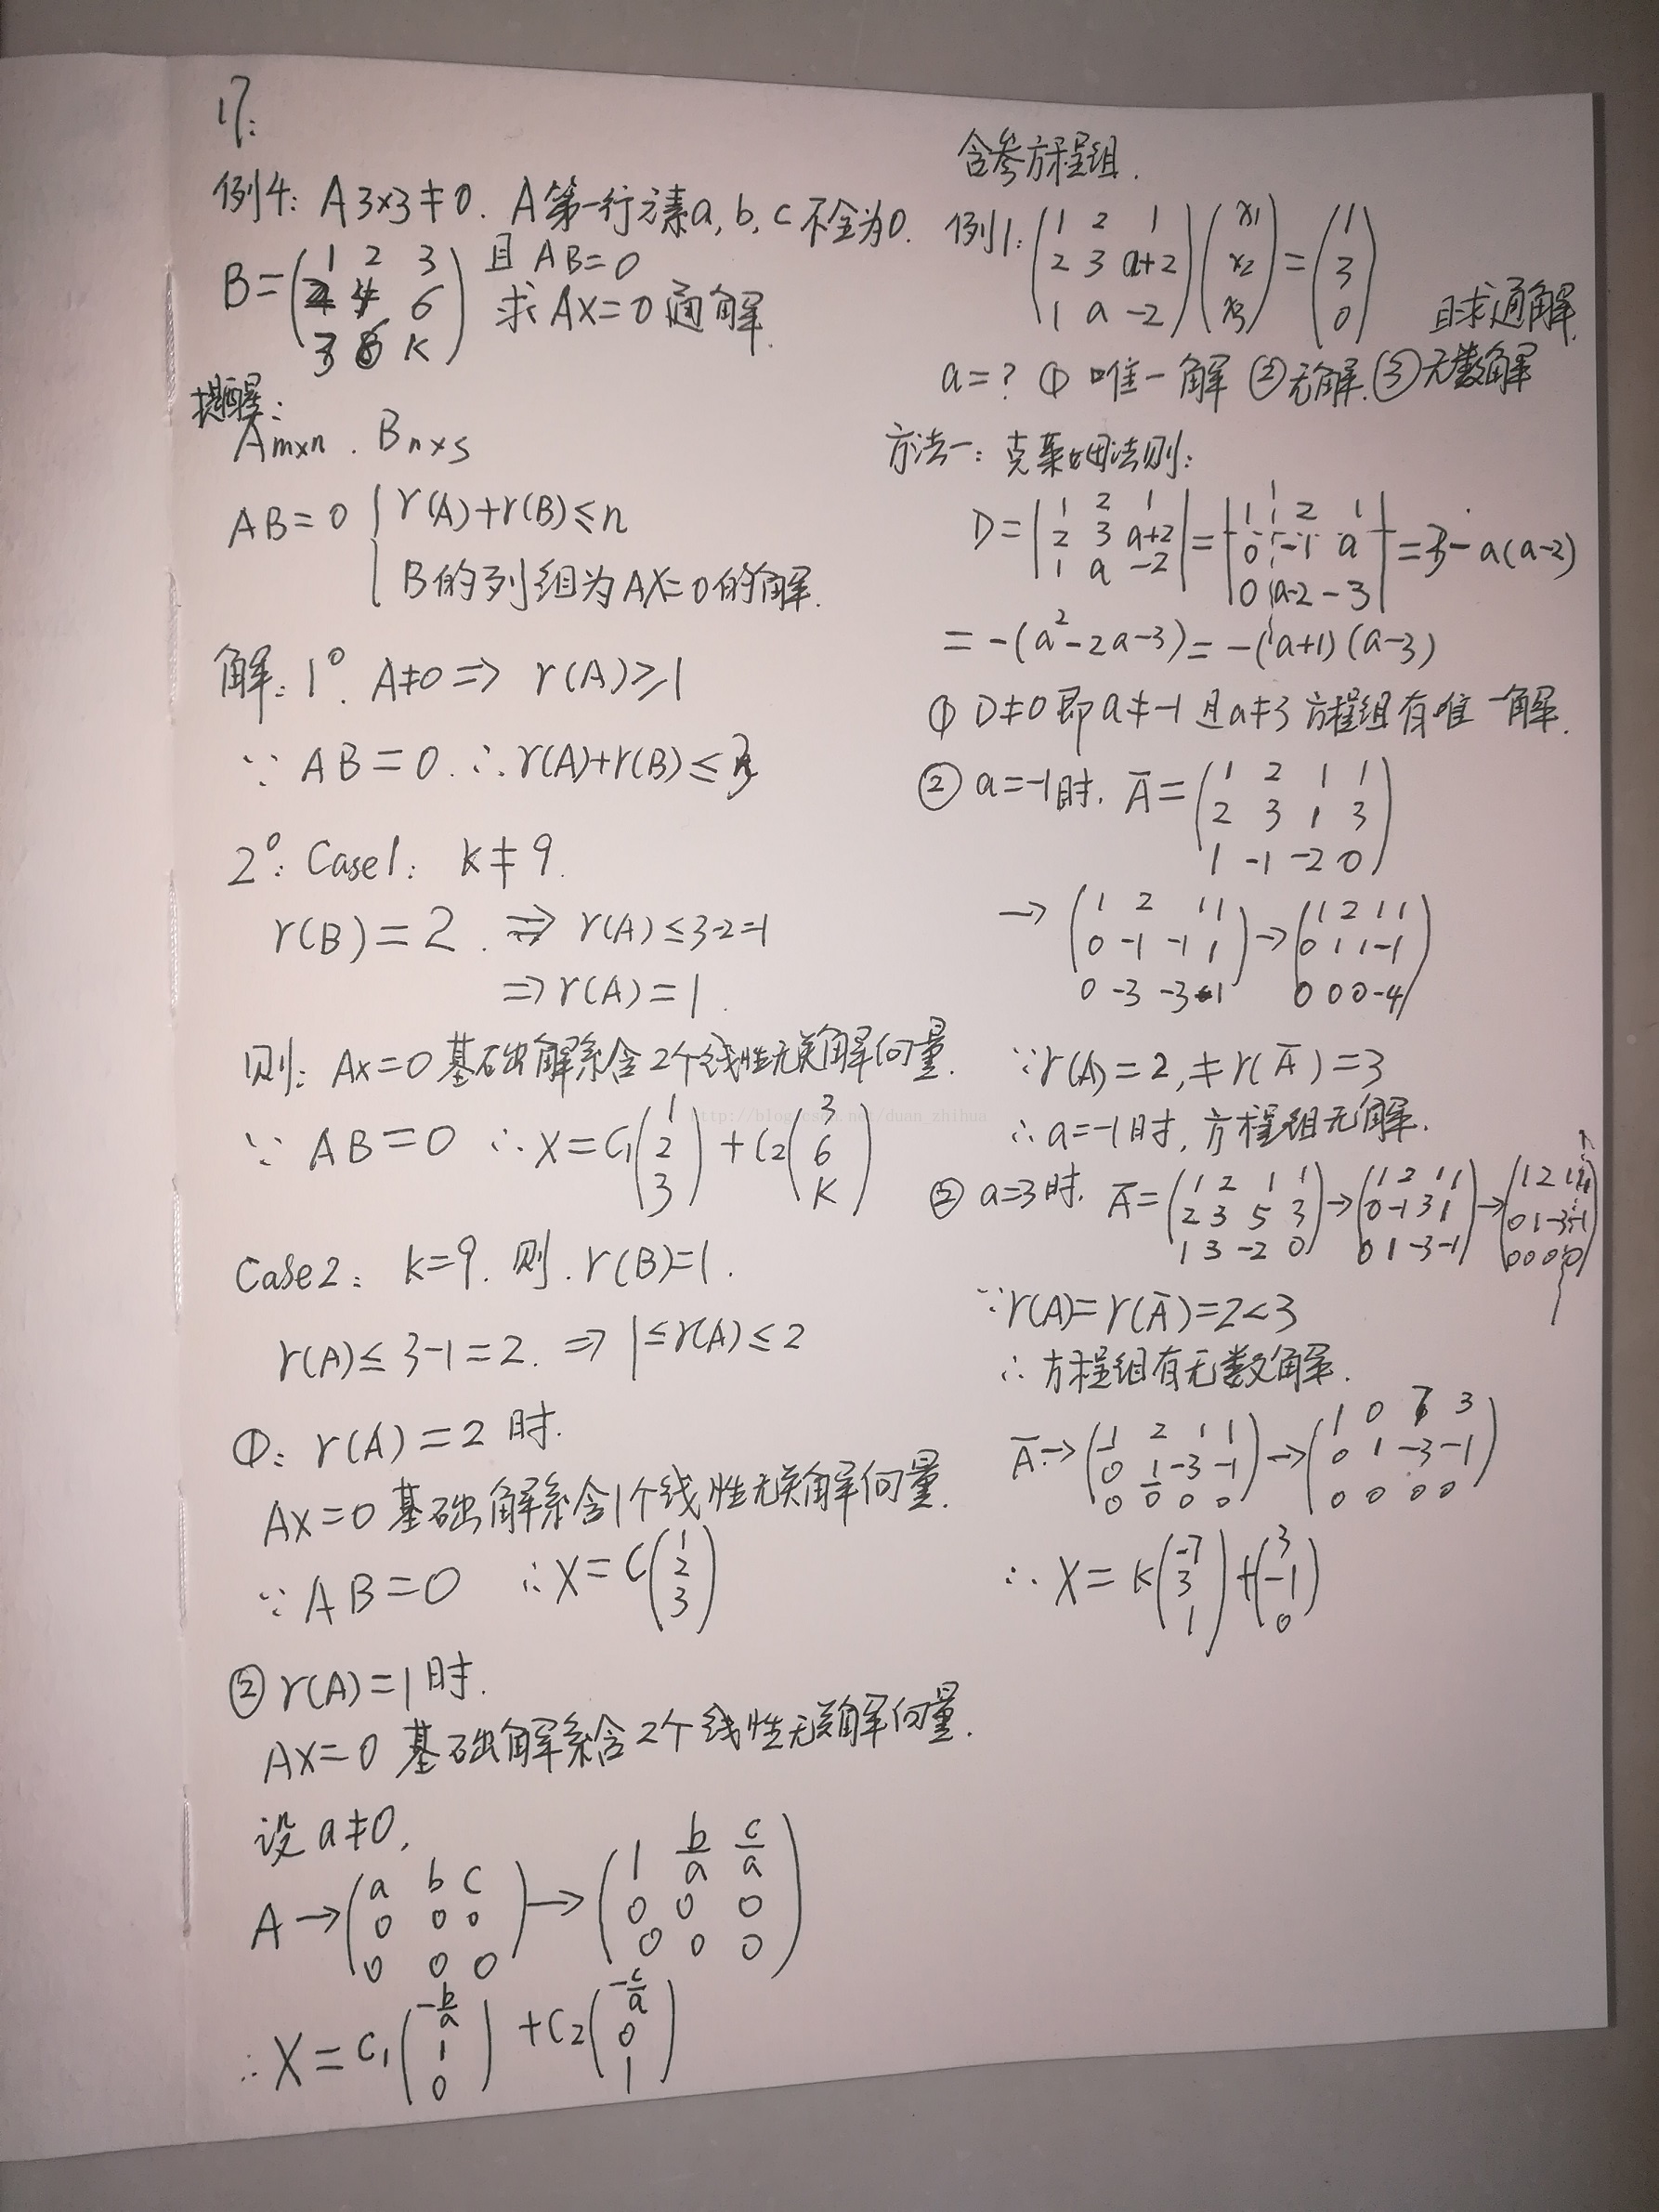 17:
例4: A3×3≠0. A第一行元素a,b,c不全为0.
B=(1 2 3 且AB=0
2 4 6 求AX=0通解.
3 6 K)
提醒:
Am×n . Bn×s
AB=0 { r(A)+r(B)≤n
B的列组为AX=0的解.
解: 1°. A≠0 ⇒ r(A)≥1
∵ AB=0. ∴ r(A)+r(B)≤3
2°: Case1: K≠9.
r(B)=2. ⇒ r(A)≤3-2=1
⇒ r(A)=1.
则: Ax=0基础解系含2个线性无关解向量.
∵ AB=0 ∴ X=C1(1 2 3)+C2(3 6 K)
Case2: k=9. 则. r(B)=1.
r(A)≤3-1=2. ⇒ 1≤r(A)≤2
①: r(A)=2时.
AX=0基础解系含1个线性无关解向量.
∵ AB=0 ∴ X=C(1 2 3)
② r(A)=1时.
AX=0基础解系含2个线性无关解向量.
设a≠0,
A→(a b c
0 0 0
0 0 0)→(1 b/a c/a
0 0 0
0 0 0)
∴ X=C1(-b/a 1 0)+C2(-c/a 0 1)
含参方程组.
例1: (1 2 1
2 3 a+2
1 a -2)(x1 x2 x3)=(1 3 0) 且求通解.
a=? ① 唯一解 ②无解. ③无数解
方法一: 克莱姆法则:
D=|1 2 1
2 3 a+2
1 a -2|=|1 2 1
0 -1 a
0 a-2 -3|=3-a(a-2)
=-(a²-2a-3)=-(a+1)(a-3)
① D≠0即a≠-1且a≠3方程组有唯一解.
② a=-1时. A̅=(1 2 1 1
2 3 1 3
1 -1 -2 0)
→(1 2 1 1
0 -1 -1 1
0 -3 -3 -1)→(1 2 1 1
0 1 1 -1
0 0 0 -4)
∵r(A)=2,≠r(A̅)=3
∴ a=-1时, 方程组无解.
② a=3时. A̅=(1 2 1 1
2 3 5 3
1 3 -2 0)→(1 2 1 1
0 -1 3 1
0 1 -3 -1)→(1 2 1 1
0 1 -3 -1
0 0 0 0)
∵r(A)=r(A̅)=2<3
∴ 方程组有无数解.
A̅→(1 2 1 1
0 1 -3 -1
0 0 0 0)→(1 0 7 3
0 1 -3 -1
0 0 0 0)
∴ X=K(-7 3 1)+(3 -1 0)
http://blog.csdn.net/duan_zhihua